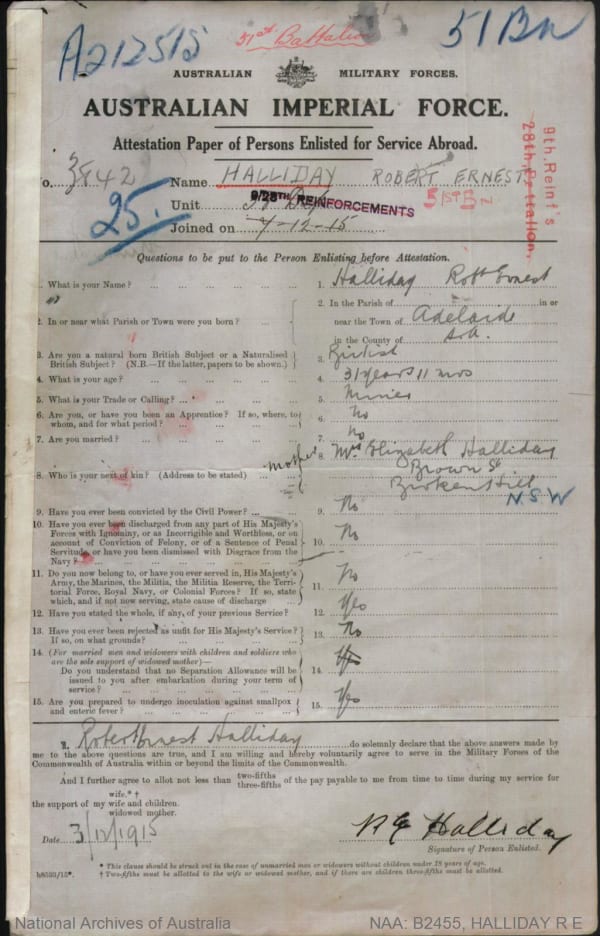 A212515
51st Battalion
51 Bn
AUSTRALIAN MILITARY FORCES.
AUSTRALIAN IMPERIAL FORCE.
Attestation Paper of Persons Enlisted for Service Abroad.
9th. Reint's
28th. Battalion.
o. 3842 Name HALLIDAY ROBERT ERNEST
25.
Unit 9/28TH REINFORCEMENTS 51ST BN
Joined on 7-12-15
Questions to be put to the Person Enlisting before Attestation.
1. What is your Name? ... ... 1. Halliday Robt Ernest
2. In or near what Parish or Town were you born? ... 2. In the Parish of in or
near the Town of Adelaide
in the County of S.A.
3. Are you a natural born British Subject or a Naturalised
British Subject? (N.B.—If the latter, papers to be shown.) 3. British
4. What is your age? ... 4. 31 years 11 mos
5. What is your Trade or Calling? ... 5. Miner
6. Are you, or have you been an Apprentice? If so, where, to
whom, and for what period? ... 6. No
7. Are you married? ... 7. No
8. Who is your next of kin? (Address to be stated) ... mother 8. Mrs Elizabeth Halliday
Brown St
Broken Hill
N.S.W
9. Have you ever been convicted by the Civil Power? ... 9. No
10. Have you ever been discharged from any part of His Majesty's
Forces with Ignominy, or as Incorrigible and Worthless, or on
account of Conviction of Felony, or of a Sentence of Penal
Servitude, or have you been dismissed with Disgrace from the
Navy? ... 10. No
11. Do you now belong to, or have you ever served in, His Majesty's
Army, the Marines, the Militia, the Militia Reserve, the Terri-
torial Force, Royal Navy, or Colonial Forces? If so, state
which, and if not now serving, state cause of discharge ... 11. No
12. Have you stated the whole, if any, of your previous Service? 12. Yes
13. Have you ever been rejected as unfit for His Majesty's Service?
If so, on what grounds? ... 13. No
14. (For married men and widowers with children and soldiers who
are the sole support of widowed mother)—
Do you understand that no Separation Allowance will be
issued to you after embarkation during your term of
service? ... 14.
15. Are you prepared to undergo inoculation against smallpox
and enteric fever? ... 15. Yes
I, Robert Ernest Halliday do solemnly declare that the above answers made by
me to the above questions are true, and I am willing and hereby voluntarily agree to serve in the Military Forces of the
Commonwealth of Australia within or beyond the limits of the Commonwealth.
And I further agree to allot not less than two-fifths three-fifths of the pay payable to me from time to time during my service for
wife.* †
the support of my wife and children.
widowed mother.
Date 3/12/1915
R E Halliday
Signature of Person Enlisted.
* This clause should be struck out in the case of unmarried men or widowers without children under 18 years of age.
† Two-fifths must be allotted to the wife or widowed mother, and if there are children three-fifths must be allotted.
National Archives of Australia
NAA: B2455, HALLIDAY R E